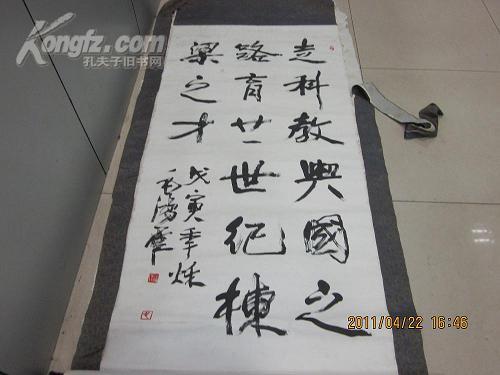 Kongfz.com
孔夫子旧书网
走科教興國之
路育廿一世纪棟
梁之才
戊寅年秋
毛
2011/04/22 16:46